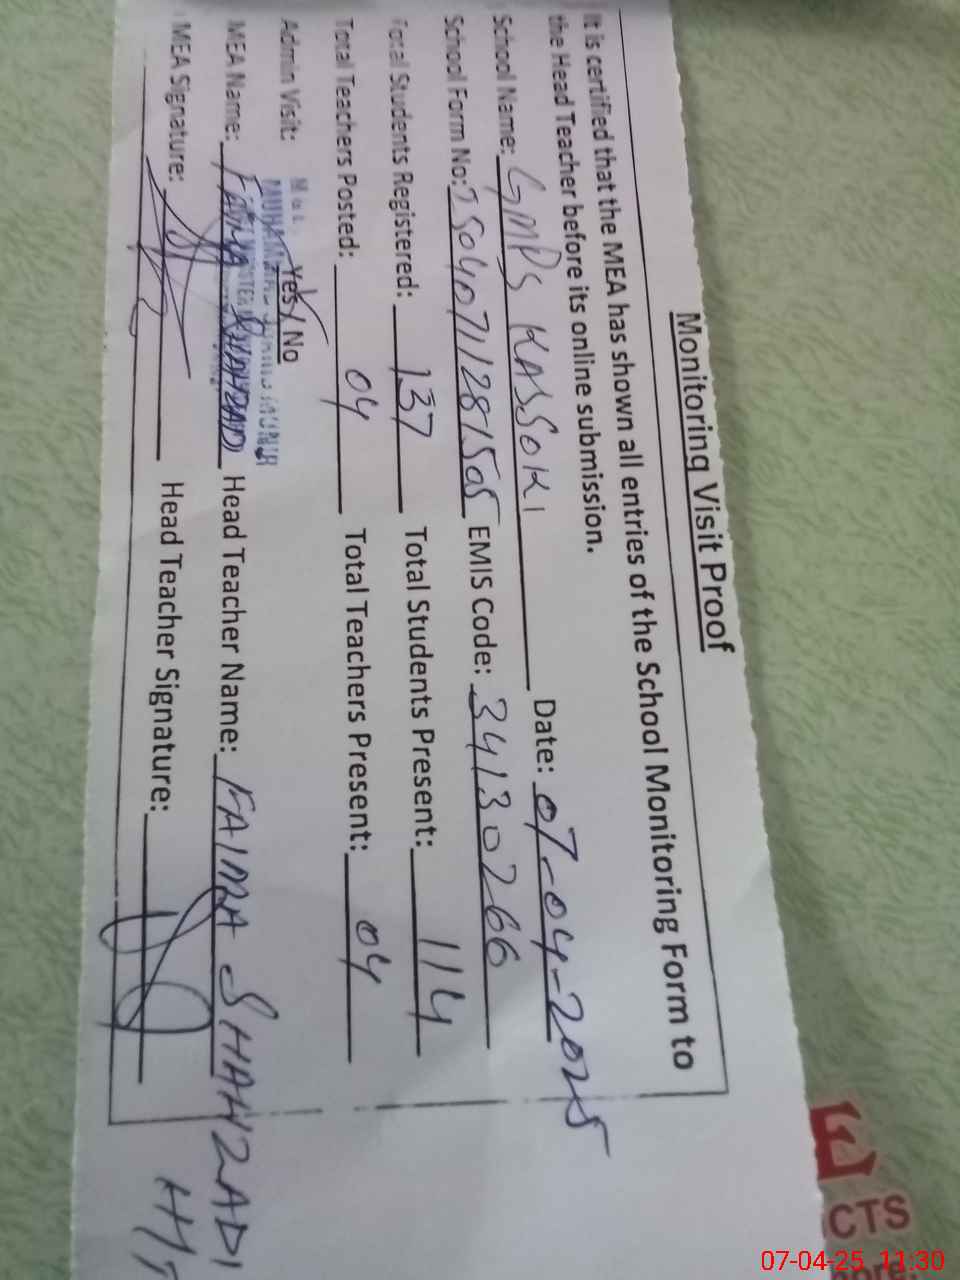 Monitoring Visit Proof
It is certified that the MEA has shown all entries of the School Monitoring Form to
the Head Teacher before its online submission.
School Name: GMPS KASSOKI Date: 07-04-2025
School Form No: 25040711281505 EMIS Code: 34130266
Total Students Registered: 137 Total Students Present: 114
Total Teachers Posted: 04 Total Teachers Present: 04
Admin Visit: Yes/No
MEA Name: Head Teacher Name: FAIMA SHAHZADI
MEA Signature: Head Teacher Signature:
CTS
07-04-25 11:30